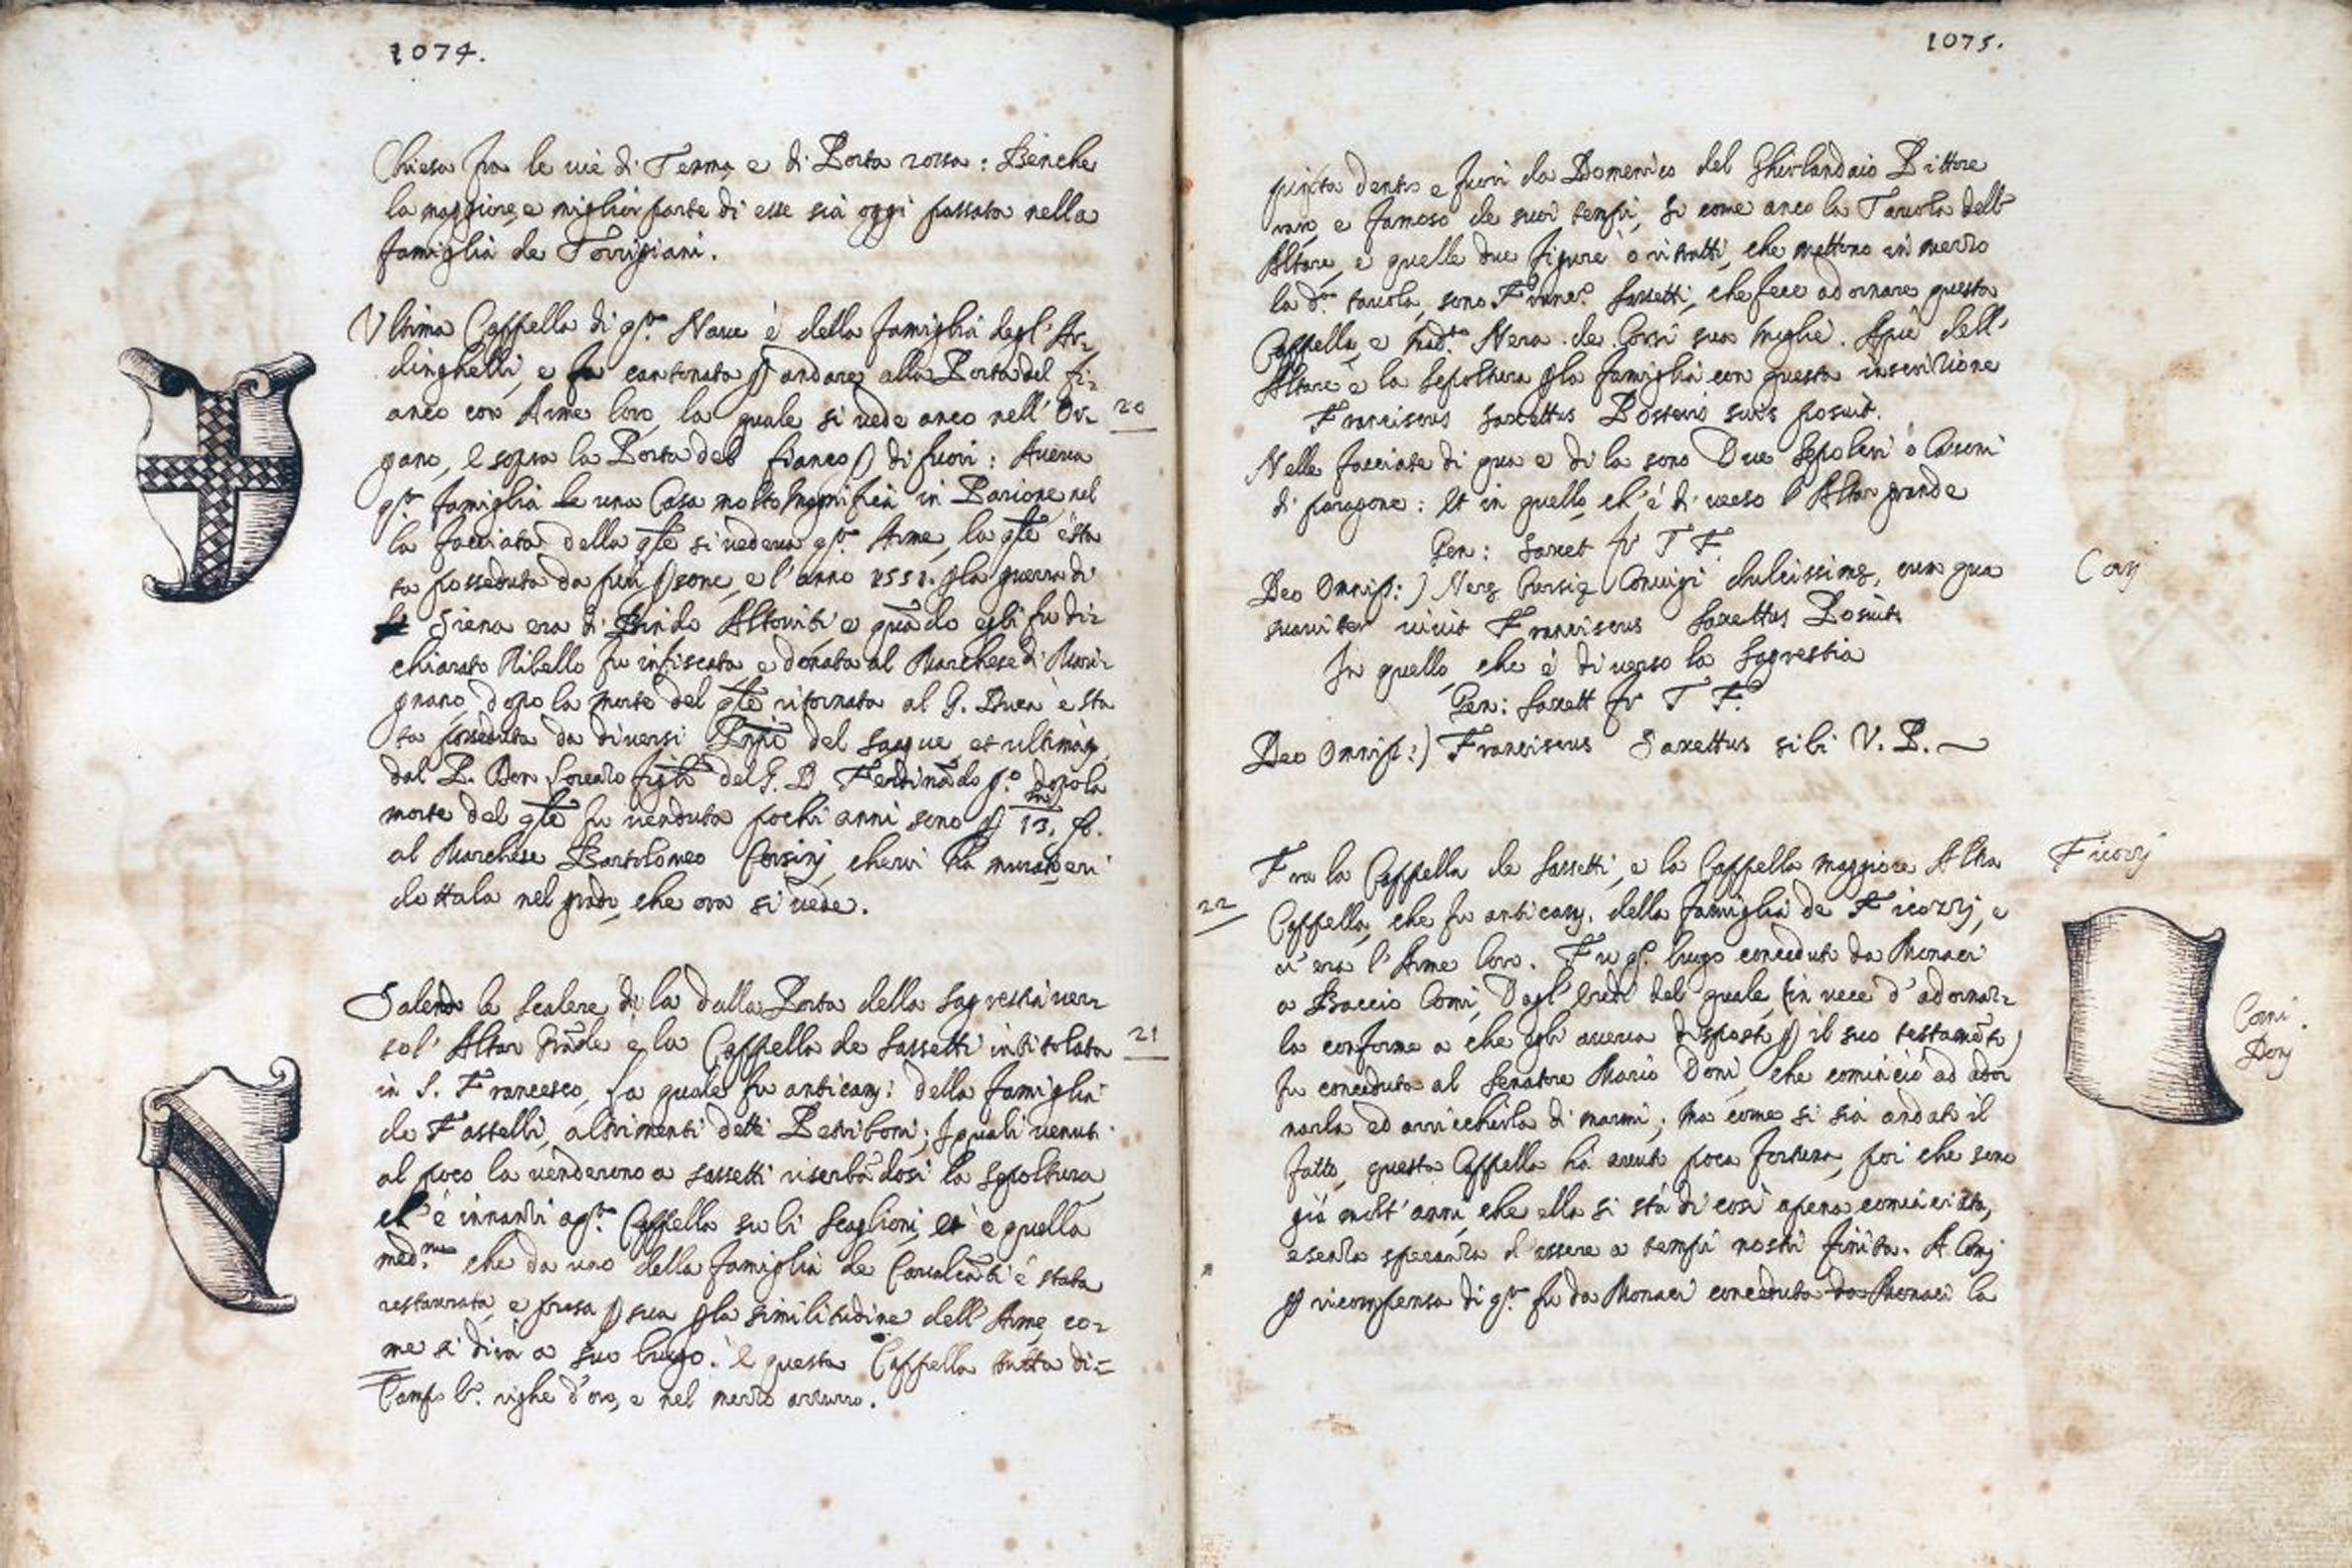 1074.
Chiesa fra le vie di Terma e di Porta rossa: Benche
la maggiore, e miglior parte di esse sia oggi passata nella
famiglia de Torrigiani.
Ultima Cappella di qsta Nave è della famiglia degl' Ar-
dinghelli, e fa cantonata p andare alla Porta del fi-
anco con Arme loro, la quale si vede anco nell' Or-
20
gano, e sopra la Porta del fianco p di fuori: Aveva
qsta famiglia una Casa molto Magnifica in Parione, nel
la facciata della qle si vedeva qsta Arme, la qle è sta
ta posseduta da più psone, e l'anno 1551. p la guerra di
Siena era di Bindo Altoviti e quādo egli fu di-
chiarato Ribello fu infiscata e donata al Marchese di Mari-
gnano, dopo la morte del qle ritornata al G. Duca è sta
ta posseduta da diversi Prpi del sangue, et ultimam.
dal P. Don Lorenzo figlo del G. D. Ferdinādo po dopo la
morte del qle fu venduta pochi anni sono p 13. m
al Marchese Bartolomeo Corsinj, che vi ha murato, e ri
dottala nel grado, che ora si vede.
Salendo le scalere di la dalla Porta della Sagrestia ver-
so l' Altar Grāde è la Cappella de Sassetti intitolata
21
in S. Francesco, la quale fu anticam: della famiglia
de Fastelli, altrimenti detti Petriboni; I quali venuti
al poco la venderono a Sassetti riserbādosi la Sepoltura,
ch' è innanzi a qsta Cappella su li Scaglioni, et è quella
med.ma che da uno della famiglia de Cavalcāti è stata
restaurata, e presa p sua p la similitudine dell' Arme, co-
me si dirà a suo luogo. è questa Cappella tutta di-
Campo B. righe d'oro, e nel mezzo azzurro.
1075.
pinta dentro e fuori da Domenico del Ghirlandaio Pittore
raro, e famoso de suoi tempi, si come anco la Tavola dell'
Altare, e quelle due figure ò ritratti, che mettono in mezzo
la da tavola, sono Franc.o Sassetti, che fece adornare questa
Cappella, e Mad.a Nera de Corsi sua Moglie. Apiè dell'
Altare è la Sepoltura p la famiglia con questa inscrizione
Franciscus Saxettus Posteris suis posuit.
Nelle facciate di qua e di la sono Due Sepolcri ò Cassoni
di paragone: Et in quello ch' è di verso l' Altar grande
Gen: Saxet fr T F.
Deo Omnip:) Nerę Corsię Coniugi dulcissimę, cum qua
Corsj
suaviter vixit Franciscus Saxettus Posuit.
In quello, che è di verso la Sagrestia
Gen: Saxett fr T F.
Deo Omnip:) Franciscus Saxettus sibi V. P.
Fra la Cappella de Sassetti, e la Cappella maggiore Altra
Ficozzj
22
Cappella, che fu anticam. della famiglia de Ficozzj, e
vi era l'Arme loro. Fu qo luogo conceduto da Monaci
a Baccio Comi, Dagl' eredi del quale (in vece d'adornar-
la conforme a che egli aveva disposto p il suo testamēto)
Comi.
Donj
fu conceduta al Senatore Mario Doni, che cominciò ad ador
narla ed arricchirla di marmi; ma come si sia andato il
fatto, questa Cappella hà avuto poca fortuna, poi che sono
già molt' anni che ella si stà di così apena cominciata,
e senza speranza d'essere a tempi nostri finita. A Comj
p ricompensa di qsta fu da Monaci conceduta da Monaci la